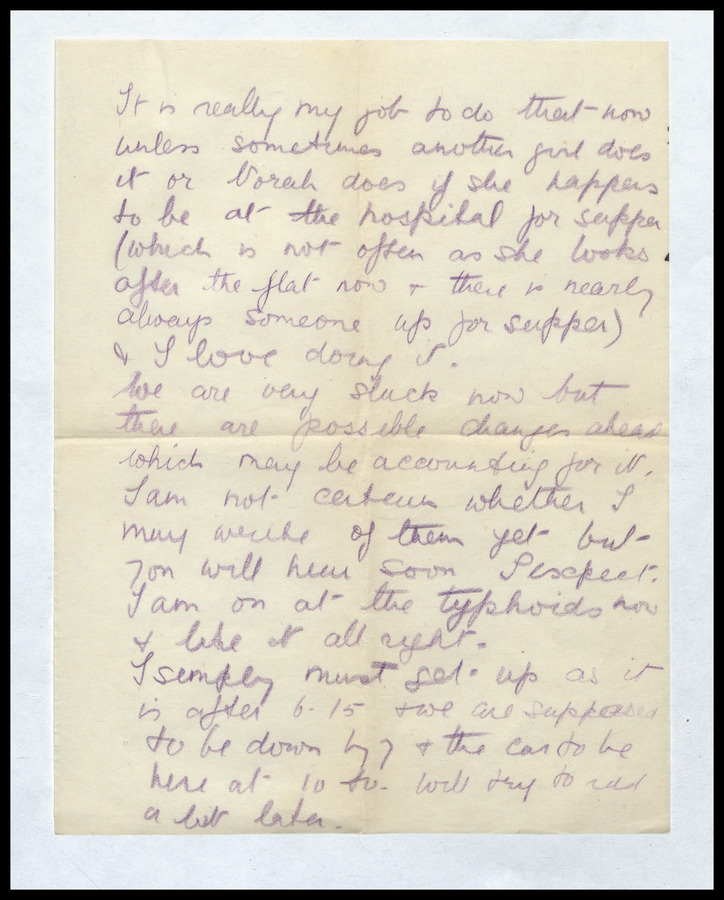 It is really my job to do that now
unless sometimes another girl does
it or Norah does if she happens
to be at the hospital for supper
(which is not often as she looks
after the flat now + there is nearly
always someone up for supper)
& I love doing it.
We are very slack now but
there are possible changes ahead
which may be accounting for it.
I am not certain whether I
may write of them yet but
you will hear soon I expect.
I am on at the typhoids now
& like it all right.
I simply must get up as it
is after 6.15 + we are supposed
to be down by 7 + the car to be
here at 10 to. Will try to add
a bit later.